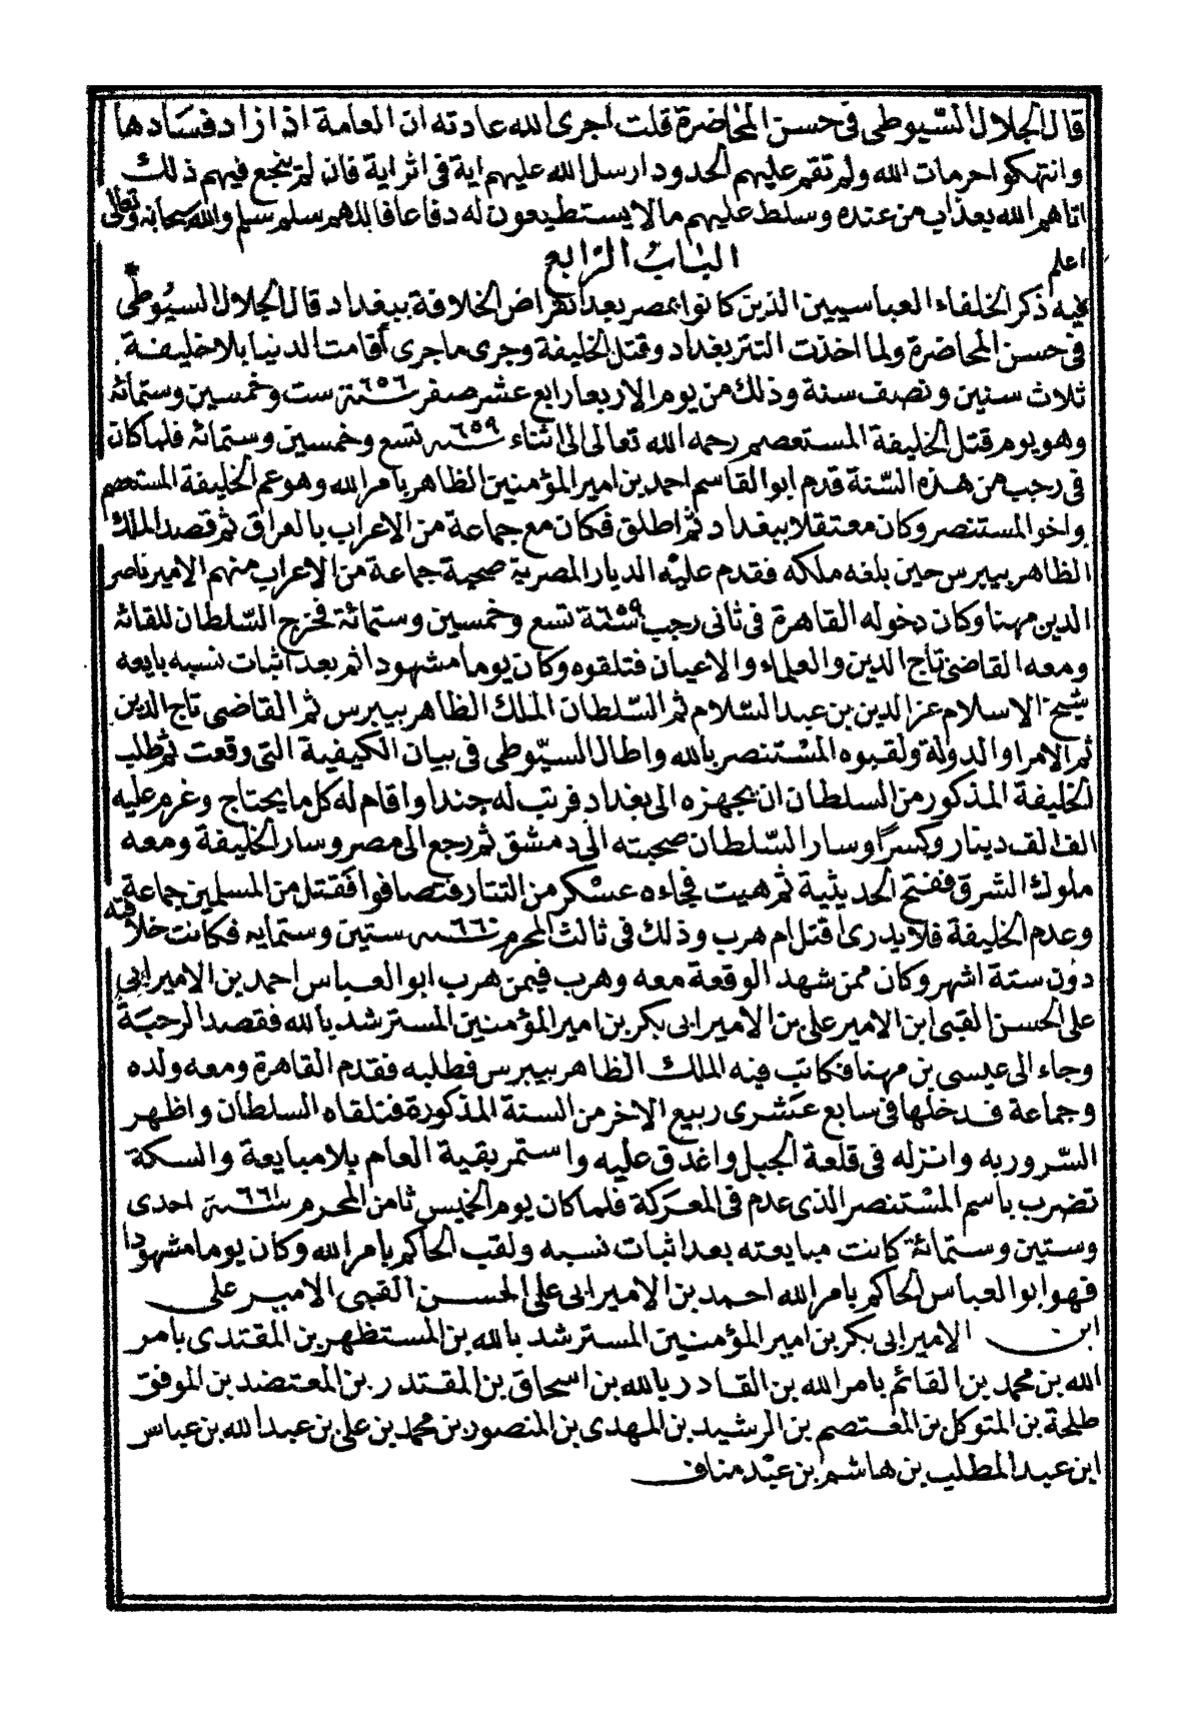 قال الجلال السّيوطى فى حسن المحاضرة قلت اجرى الله عادته ان العامة اذا زاد فسادها
وانتهكوا حرمات الله ولم تقم عليهم الحدود ارسل الله عليهم اية فى اثر اية فان لم ينجع فيهم ذلك
اتاهم الله بعذاب من عنده وسلط عليهم ما لا يستطيعون له دفاعا فاللهم سلم سلم والله سبحانه وتعالى
اعلم
الباب الرابع
فيه ذكر الخلفاء العباسيين الذين كانوا بمصر بعد انقراض الخلافة ببغداد قال الجلال السيوطى
فى حسن المحاضرة ولما اخذت التتر بغداد وقتل الخليفة وجرى ما جرى أقامت الدنيا بلا خليفة
ثلاث سنين ونصف سنة وذلك من يوم الاربعا رابع عشر صفر سنة ٦٥٦ ست وخمسين وستمائة
وهو يوم قتل الخليفة المستعصم رحمه الله تعالى الى اثناء سنة ٦٥٩ تسع وخمسين وستمائة فلما كان
فى رجب من هذه السّنة قدم ابو القاسم احمد بن امير المؤمنين الظاهر بامر الله وهو عم الخليفة المستعصم
واخو المستنصر وكان معتقلا ببغداد ثم اطلق فكان مع جماعة من الاعراب بالعراق ثم قصد الملك
الظاهر بيبرس حين بلغه ملكه فقدم عليه الديار المصرية صحبة جماعة من الاعراب منهم الامير ناصر
الدين مهنا وكان دخوله القاهرة فى ثانى رجب سنة ٦٥٩ تسع وخمسين وستمائة فخرج السّلطان للقائه
ومعه القاضى تاج الدين والعلماء والاعيان فتلقوه وكان يوما مشهودا ثم بعد اثبات نسبه بايعه
شيخ الاسلام عز الدين بن عبد السّلام ثم السّلطان الملك الظاهر بيبرس ثم القاضى تاج الدين
ثم الامرا والدولة ولقبوه المستنصر بالله واطال السيّوطى فى بيان الكيفية التى وقعت ثم طلب
الخليفة المذكور من السلطان ان يجهزه الى بغداد فرتب له جندا واقام له كل ما يحتاج وغرم عليه
الف الف دينار وكسرًا وسار السّلطان صحبته الى دمشق ثم رجع الى مصر وسار الخليفة ومعه
ملوك الشرق ففتح الحديثية ثم هيت فجاءه عسكر من التتار فتصافوا فقتل من المسلمين جماعة
وعدم الخليفة فلا يدرى أقتل ام هرب وذلك فى ثالث المحرم سنة ٦٦٠ ستين وستمايه فكانت خلافته
دون ستة اشهر وكان ممن شهد الوقعة معه وهرب فيمن هرب ابو العباس احمد بن الامير ابى
على الحسن القبى ابن الامير على بن الامير ابى بكر بن امير المؤمنين المسترشد بالله فقصد الرحبة
وجاء الى عيسى بن مهنا فكاتب فيه الملك الظاهر بيبرس فطلبه فقدم القاهرة ومعه ولده
وجماعة فدخلها فى سابع عشرى ربيع الاخر من السنة المذكورة فتلقاه السلطان واظهر
السّرور به وانزله فى قلعة الجبل واغدق عليه واستمر بقية العام بلا مبايعة والسكة
تضرب باسم المستنصر الذى عدم فى المعركة فلما كان يوم الخميس ثامن المحرم سنة ٦٦١ احدى
وستين وستمائة كانت مبايعته بعد اثبات نسبه ولقب الحاكم بامر الله وكان يوما مشهودا
فهو ابو العباس الحاكم بامر الله احمد بن الامير ابى على الحسن القبى الامير على
ابن الامير ابى بكر بن امير المؤمنين المسترشد بالله بن المستظهر بن المقتدى بامر
الله بن محمد بن القائم بامر الله بن القادر بالله بن اسحاق بن المقتدر بن المعتضد بن الموفق
طلحة بن المتوكل بن المعتصم بن الرشيد بن المهدى بن المنصور بن محمد بن على بن عبد الله بن عباس
ابن عبد المطلب بن هاشم بن عبد مناف